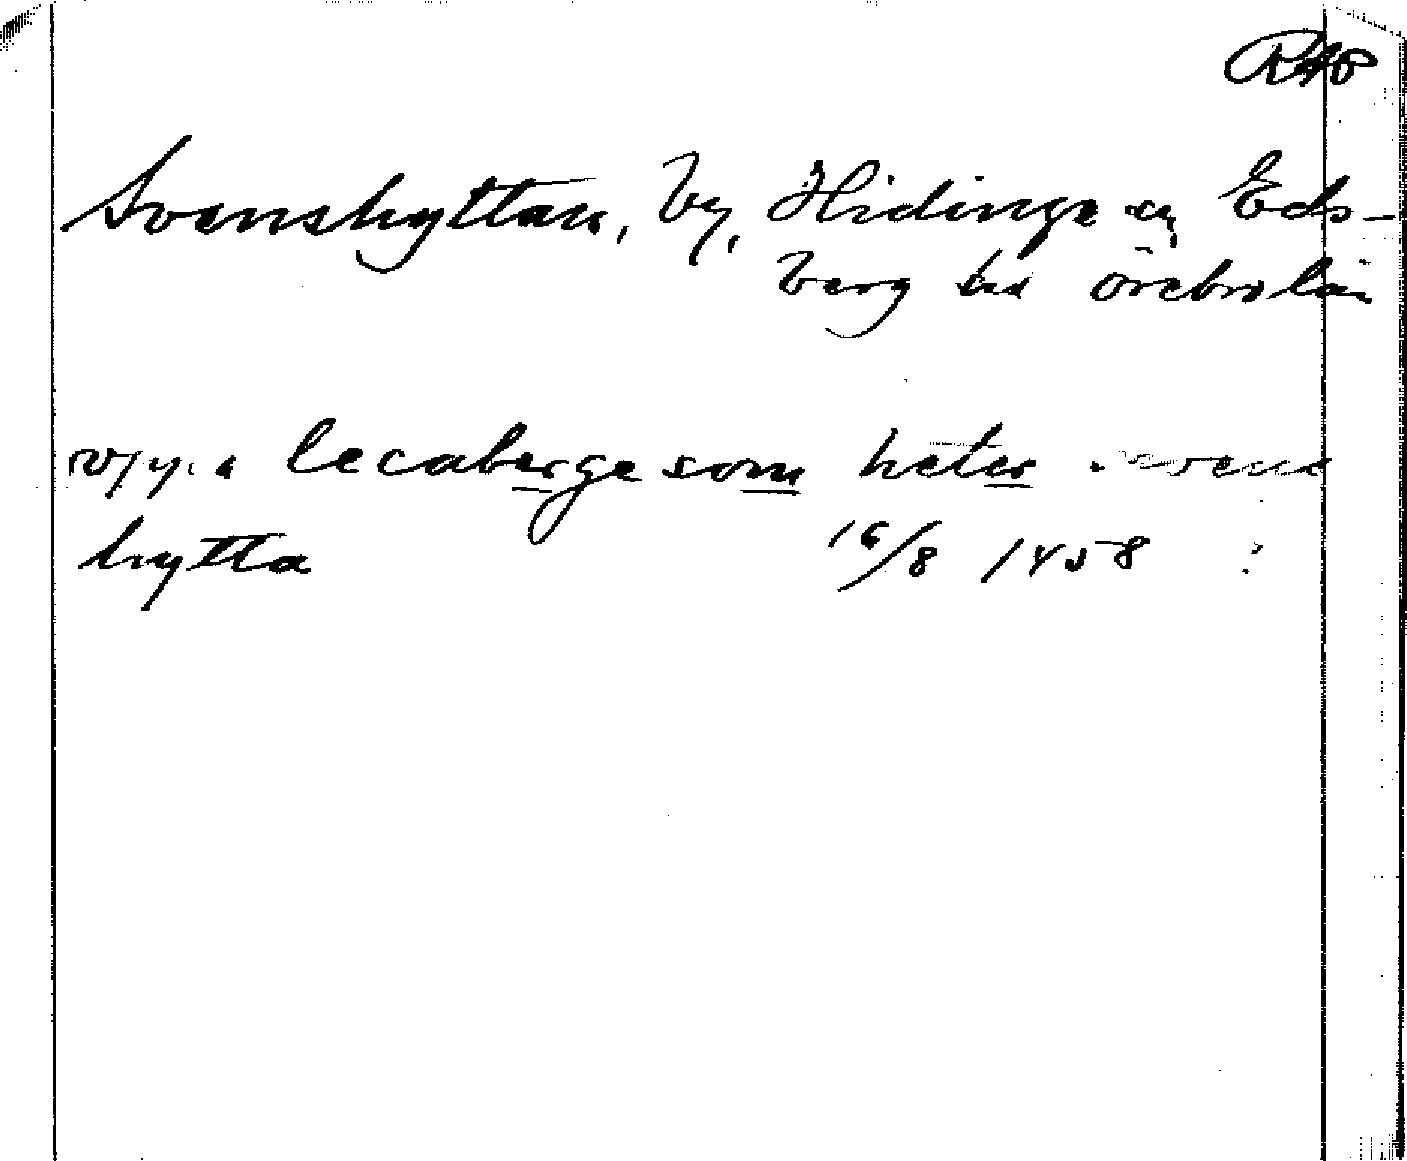 RAP
Svenshyttan, by, Hidinge sn Eds-
berg hd Örebro län
vppa lecaberge som heter swens
hytta 16/8 1458